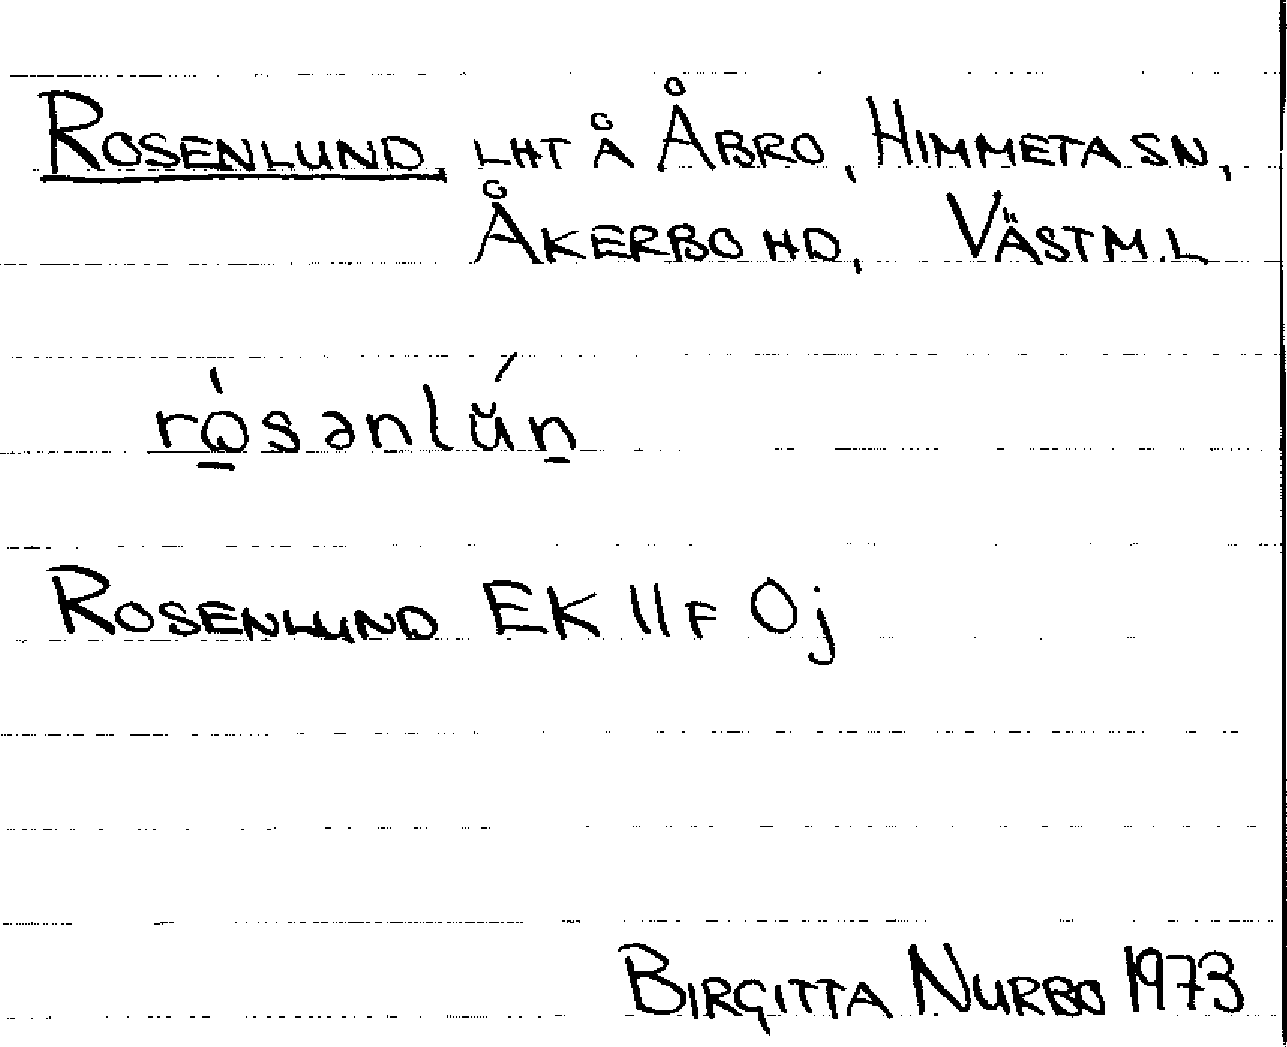 ROSENLUND LHT Å ÅBRO, HIMMETA SN,
ÅKERBO HD, VÄSTM.L
ROSENLUND EK 11F 0j
BIRGITTA NURBO 1973